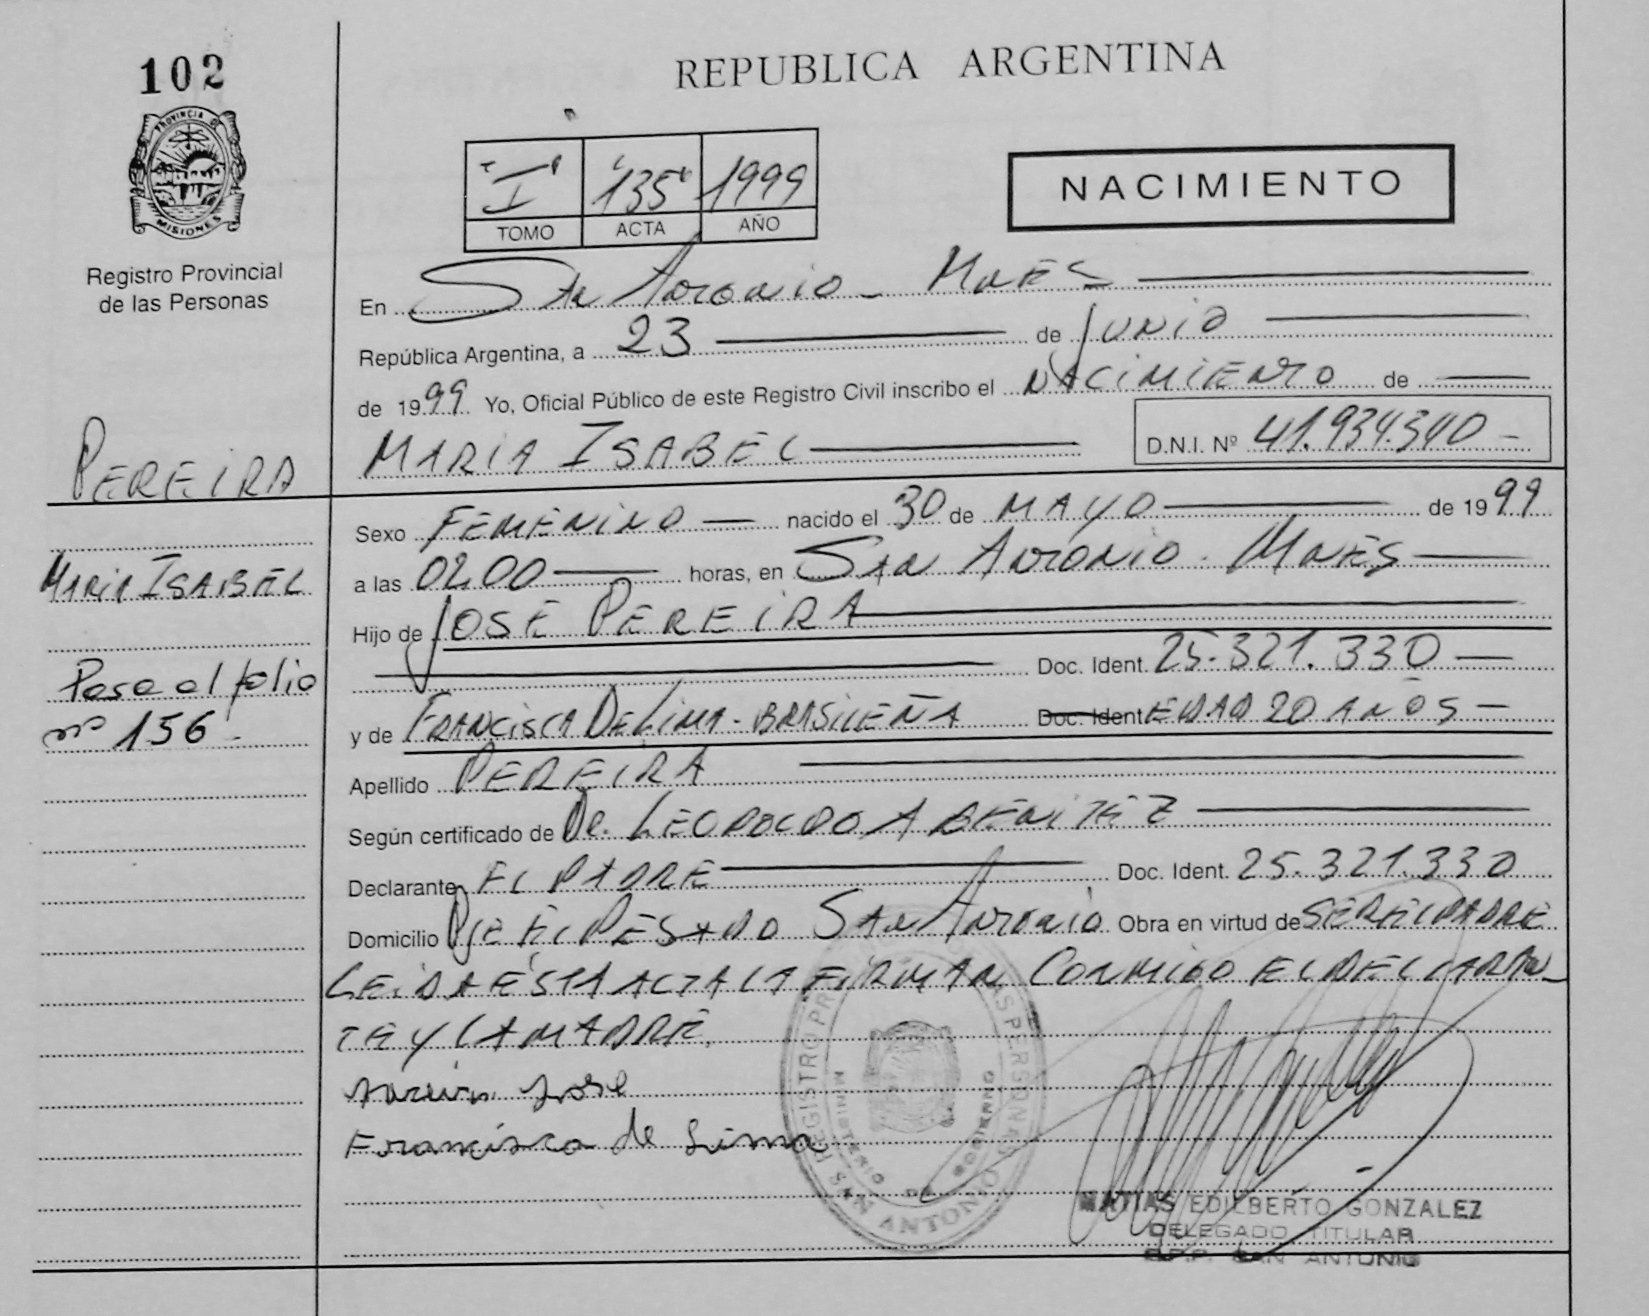 102
PROVINCIA DE
MISIONES
Registro Provincial
de las Personas
REPUBLICA ARGENTINA
"I" "135" 1999
TOMO ACTA AÑO
NACIMIENTO
En San Antonio - Mnes
República Argentina, a 23 de Junio
de 1999 Yo, Oficial Público de este Registro Civil inscribo el NACIMIENTO de
MARIA ISABEL D.N.I. Nº 41.934.340 -
PEREIRA
MARIA ISABEL
Pasa al folio
nº 156 -
Sexo FEMENINO nacido el 30 de MAYO de 1999
a las 02,00 horas, en SAN ANTONIO - Mnes
Hijo de JOSE PEREIRA
Doc. Ident. 25.321.330
y de FRANCISCA DE LIMA - BRASILEÑA Doc. Ident EDAD 20 AÑOS -
Apellido PEREIRA
Según certificado de Dr. LEOPOLDO A BENITEZ
Declarante EL PADRE Doc. Ident. 25.321.330
Domicilio San Antonio Obra en virtud de SER EL PADRE
LEIDA ESTA ACTA LA FIRMAN CONMIGO EL DECLARAN
TE Y LA MADRE.
José
Francisca de Lima
REGISTRO PR AS PERSONAS
MINISTERIO DE GOBIERNO
SAN ANTONIO
MATIAS EDILBERTO GONZALEZ
DELEGADO TITULAR
R.P.P. SAN ANTONIO